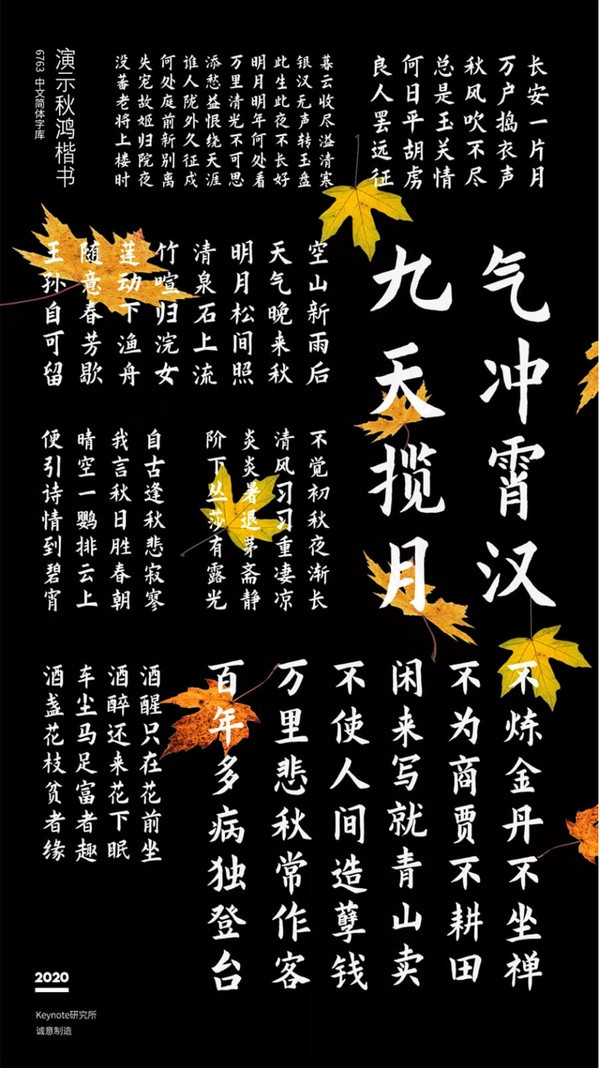 演示秋鸿楷书
6763 中文简体字库
长安一片月
万户捣衣声
秋风吹不尽
总是玉关情
何日平胡虏
良人罢远征
暮云收尽溢清寒
银汉无声转玉盘
此生此夜不长好
明月明年何处看
万里清光不可思
添愁益恨绕天涯
谁人陇外久征戍
何处庭前新别离
失宠故姬归院夜
没蕃老将上楼时
气冲霄汉
九天揽月
空山新雨后
天气晚来秋
明月松间照
清泉石上流
竹喧归浣女
莲动下渔舟
随意春芳歇
王孙自可留
不觉初秋夜渐长
清风习习重凄凉
炎炎暑退茅斋静
阶下丛莎有露光
自古逢秋悲寂寒
我言秋日胜春朝
晴空一鹦排云上
便引诗情到碧宵
不炼金丹不坐禅
不为商贾不耕田
闲来写就青山卖
不使人间造孽钱
万里悲秋常作客
百年多病独登台
酒醒只在花前坐
酒醉还来花下眠
车尘马足富者趣
酒盏花枝贫者缘
2020
Keynote研究所
诚意制造